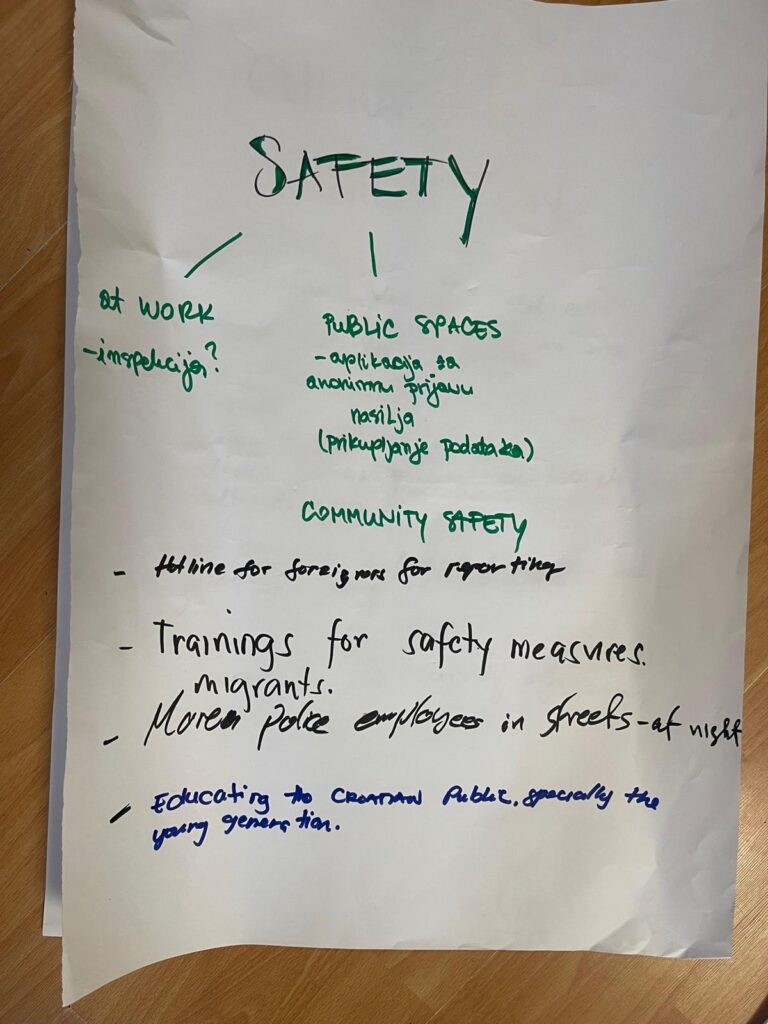 SAFETY
at WORK
-inspekcija?
PUBLIC SPACES
-aplikacija za
anonimnu prijavu
nasilja
(prikupljanje podataka)
COMMUNITY SAFETY
- Hotline for foreigners for reporting
- Trainings for safety measures.
migrants.
- More police employees in streets-at night
- Educating the CROATIAN Public, specially the
young generation.